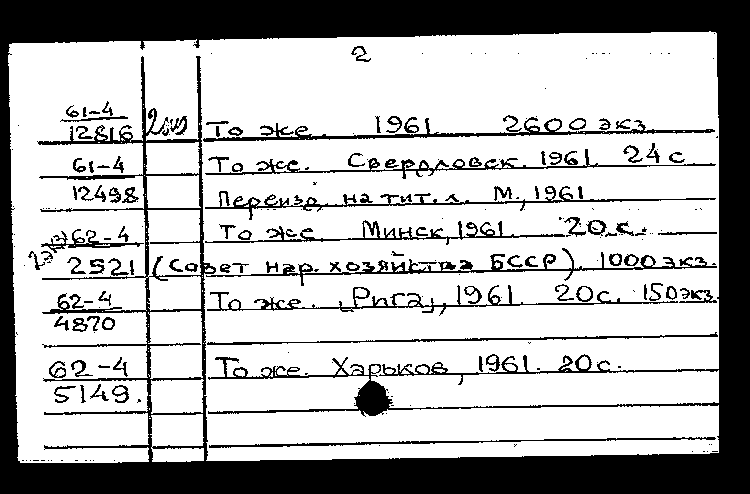 2
61-4
12816 То же. 1961. 2600 экз.
61-4 То же. Свердловск. 1961. 24 с.
12498 Переизд. на тит. л. М., 1961
62-4 То же. Минск, 1961. 20 с.
2521 (Совет нар. хозяйства БССР). 1000 экз.
62-4 То же. [Рига], 1961. 20 с. 150 экз.
4870
62-4 То же. Харьков, 1961. 20 с.
5149.